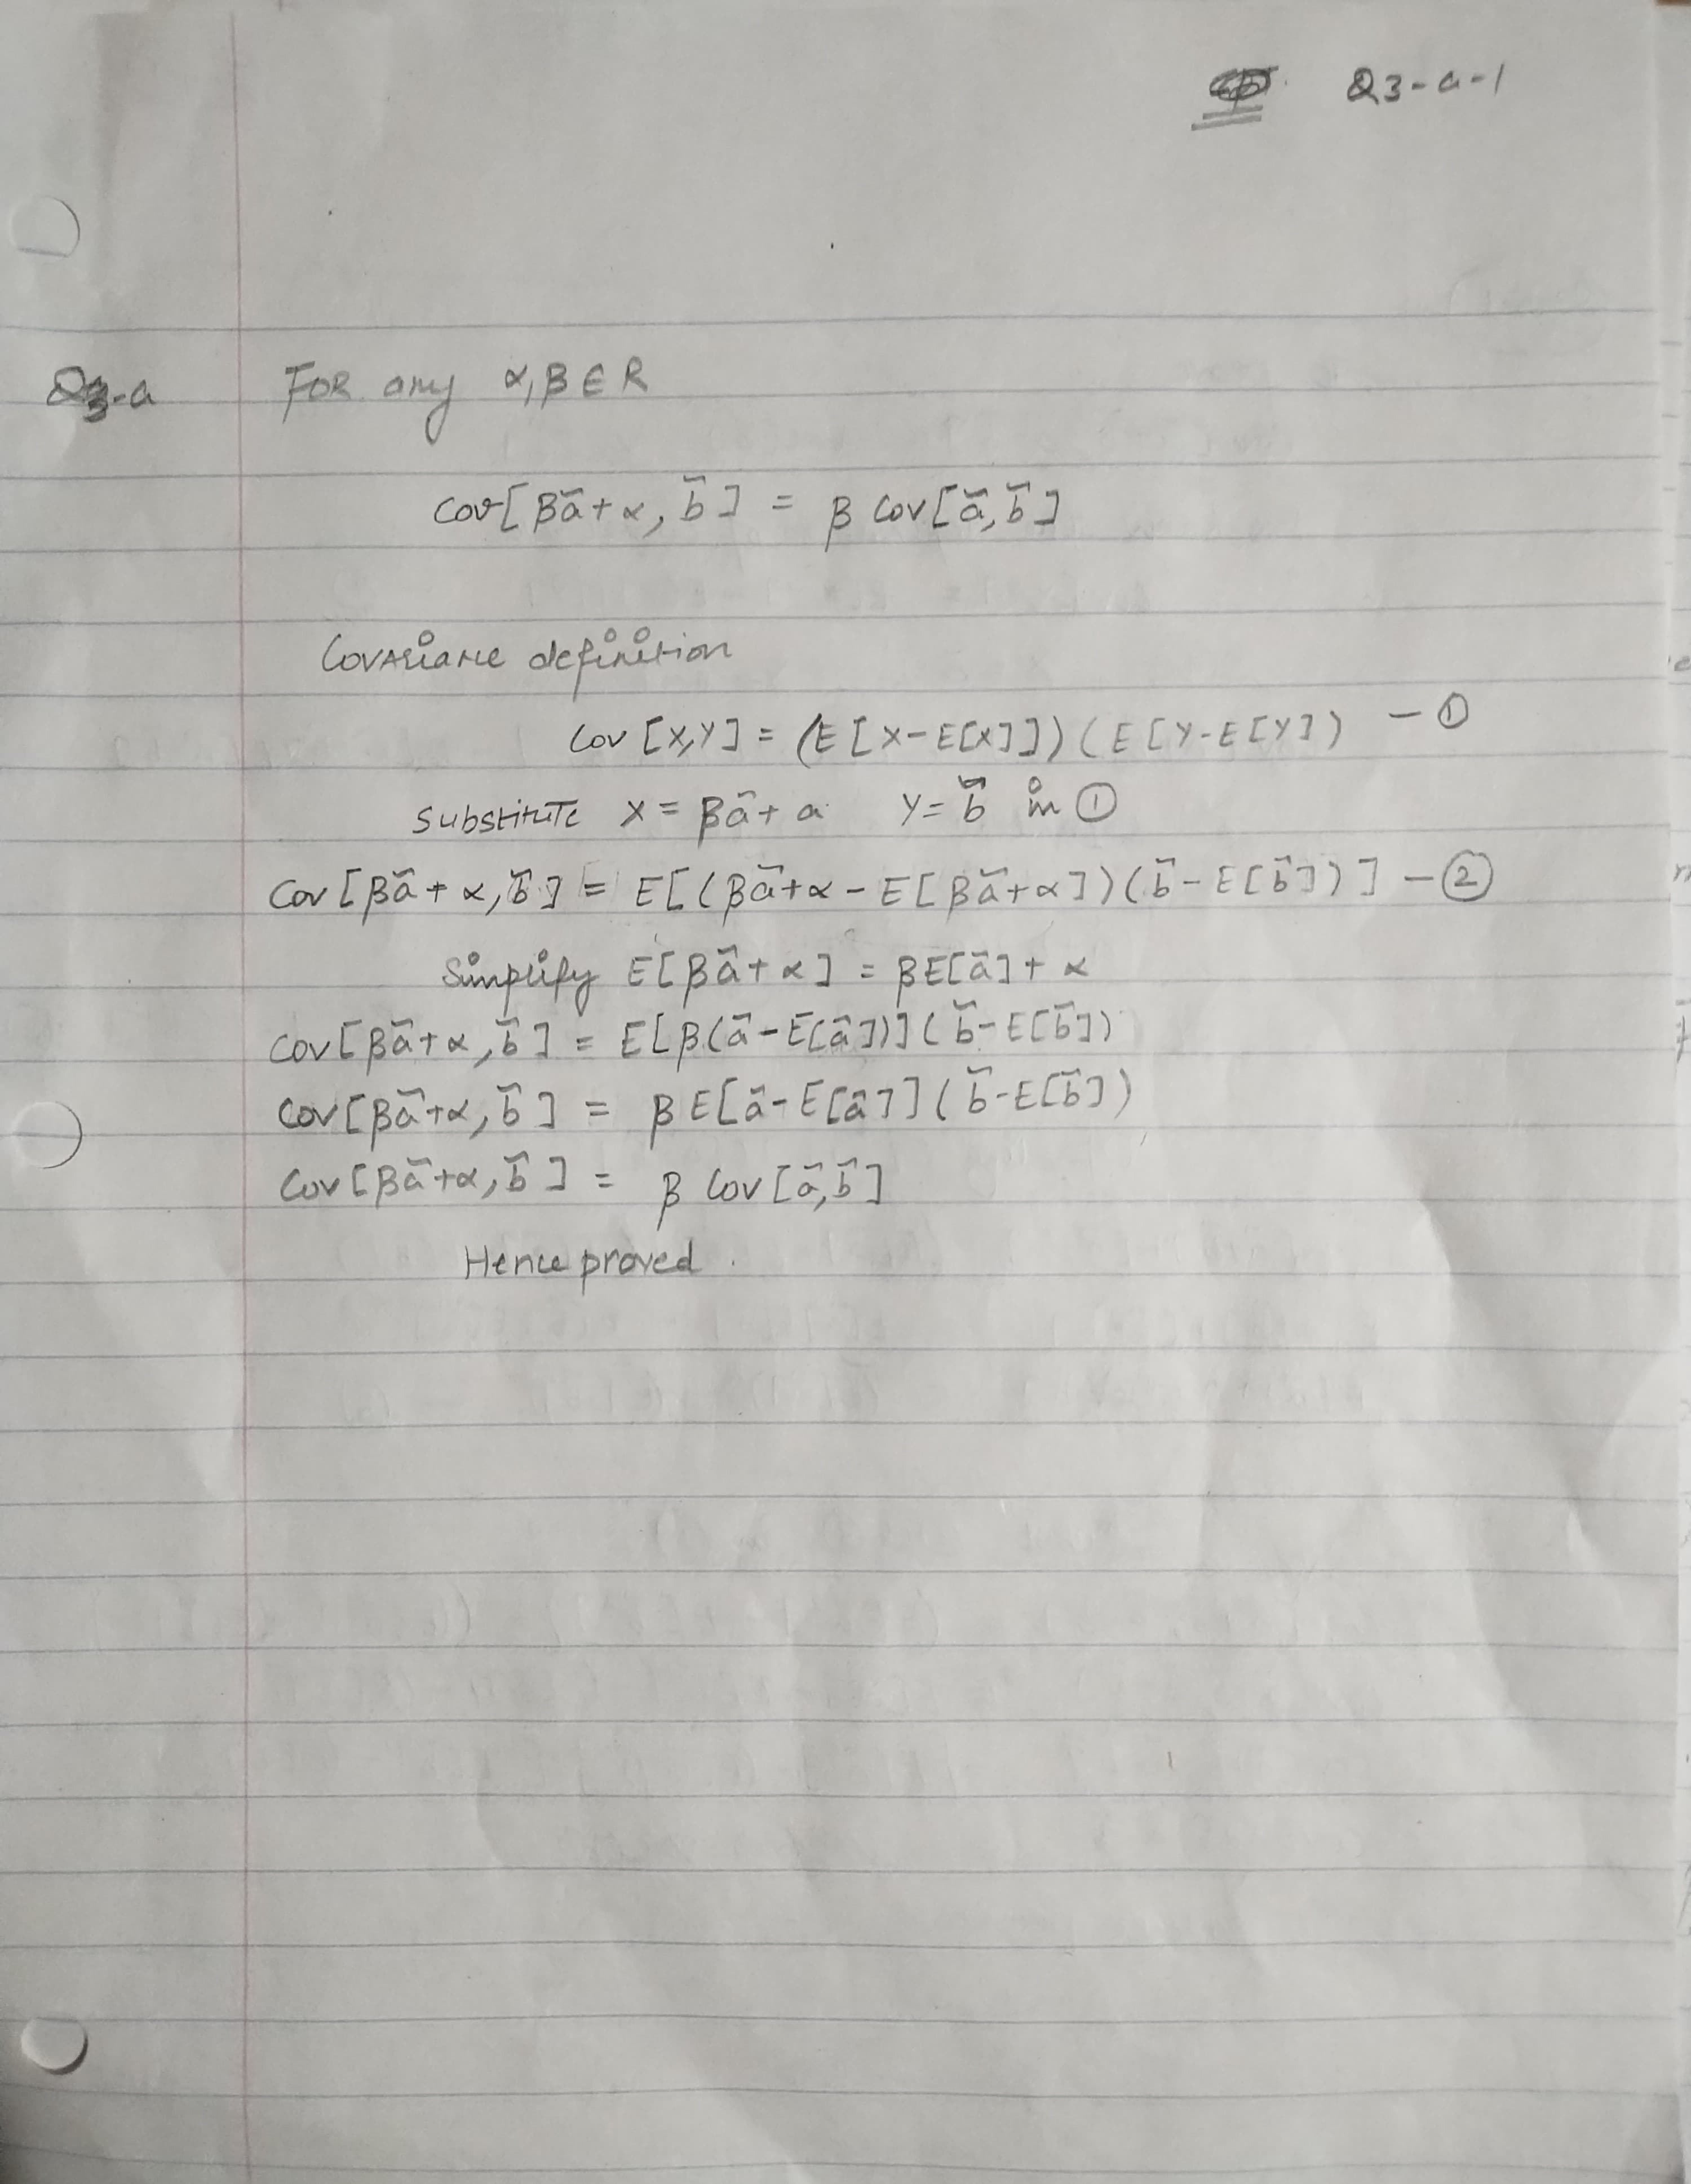 Q3-a-1
Q3-a For any α, β ∈ R
Cov[βã+α, b̃] = β Cov[ã, b̃]
Covariance definition
Cov [X,Y] = (E[X-E[X]])(E[Y-E[Y]) -①
Substitute X = βã+a Y= b̃ in ①
Cov[βã+α, b̃] = E[(βã+α - E[βã+α])(b̃-E[b̃])] -②
Simplify E[βã+α] = βE[ã]+ α
Cov[βã+α, b̃] = E[β(ã-E[ã])](b̃-E[b̃])
Cov[βã+α, b̃] = βE[ã-E[ã]](b̃-E[b̃])
Cov[βã+α, b̃] = β Cov[ã, b̃]
Hence proved.